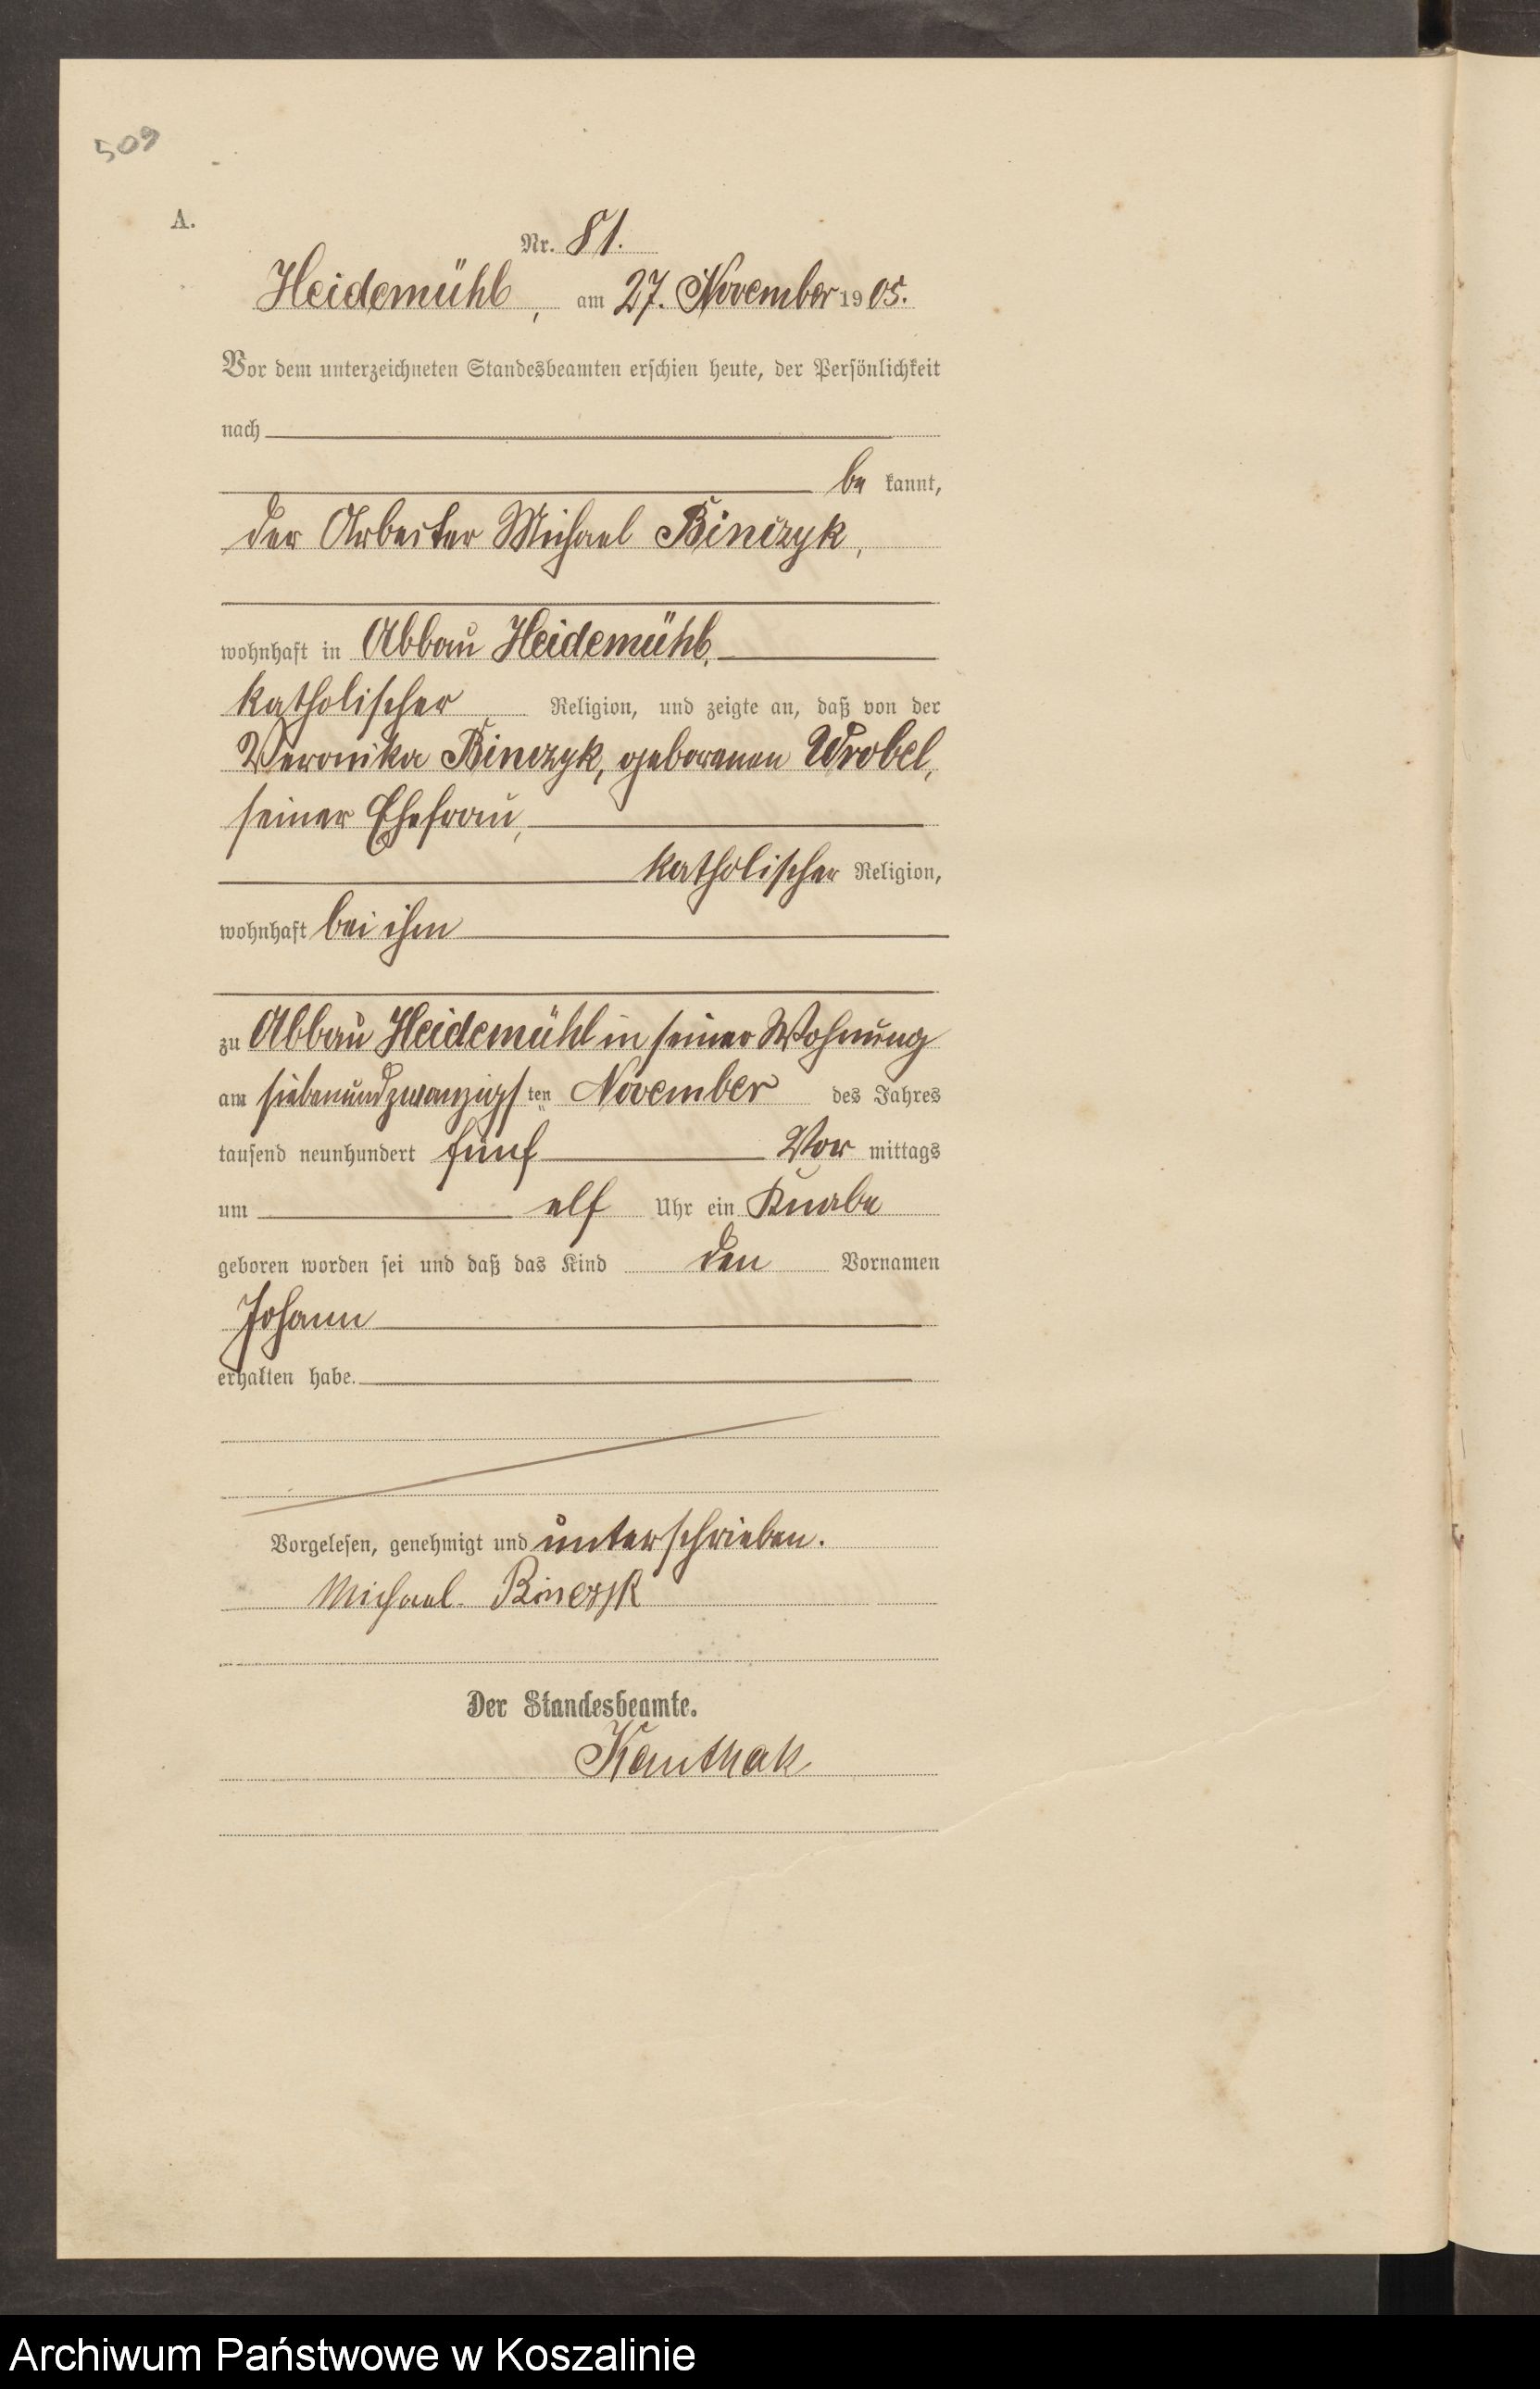 509
A.
Nr. 81.
Heidemühl, am 27. November 1905.
Vor dem unterzeichneten Standesbeamten erschien heute, der Persönlichkeit
nach
be kannt,
der Arbeiter Michael Binczyk,
wohnhaft in Abbau Heidemühl,
katholischer Religion, und zeigte an, daß von der
Veronika Binczyk, geborenen Wrobel,
seiner Ehefrau,
katholischer Religion,
wohnhaft bei ihm
zu Abbau Heidemühl in seiner Wohnung
am siebenundzwanzigsten November des Jahres
tausend neunhundert fünf Vor mittags
um elf Uhr ein Knabe
geboren worden sei und daß das Kind den Vornamen
Johann
erhalten habe.
Vorgelesen, genehmigt und unterschrieben.
Michael Binczyk
Der Standesbeamte.
Kauthak
Archiwum Państwowe w Koszalinie